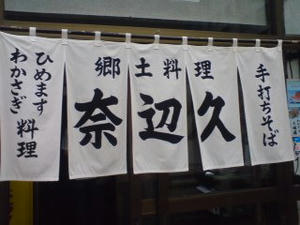 郷土料理
奈辺久
手打ちそば
ひめます
わかさぎ
料理